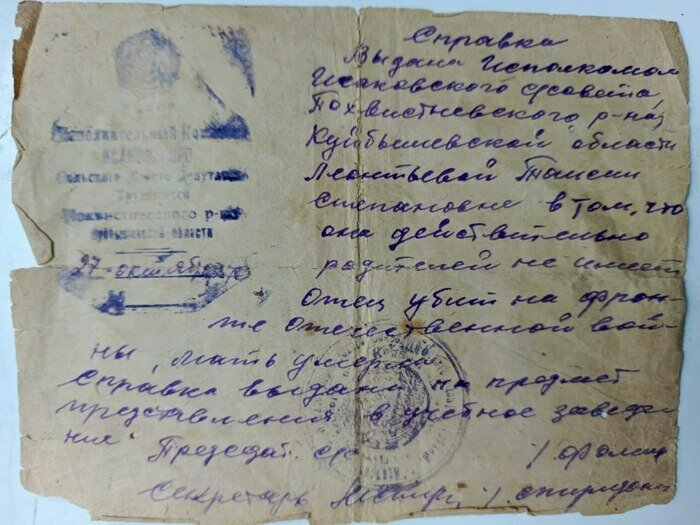 Справка
Выдана Исполкомом
Исаковского с/совета,
Похвистневского р-на,
Куйбышевской области
Леонтьевой Таисии
Степановне в том, что
она действительно
родителей не имеет
Отец убит на фрон-
те отечественной вой-
ны, мать умерла
Справка выдана на предмет
представления в учебное заведе
ние Председат с/с
Секретарь
РСФСР
Исполнительный Комитет
ИСАКОВСКОГО
Сельского Совета Депутатов
Трудящихся
Похвистневского р-на
Куйбышевской области
27 октября